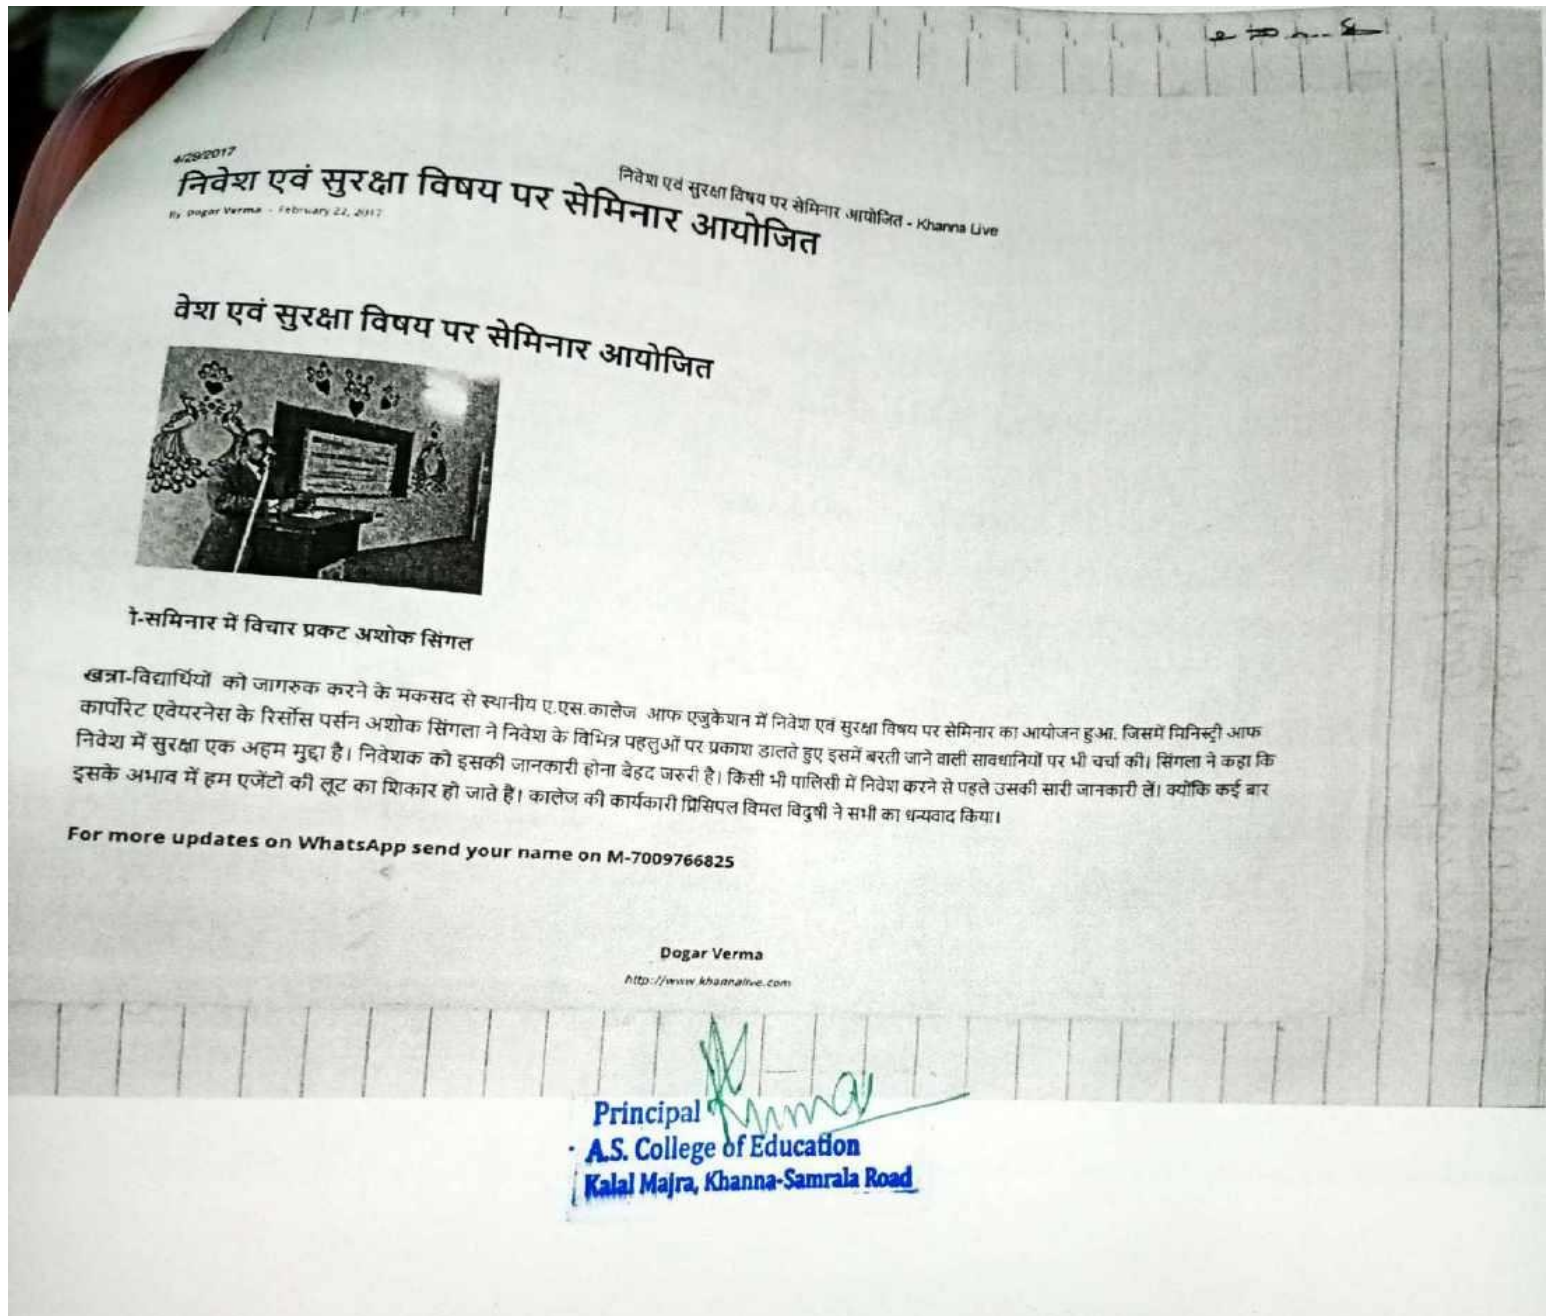 4/29/2017
निवेश एवं सुरक्षा विषय पर सेमिनार आयोजित - Khanna Live
निवेश एवं सुरक्षा विषय पर सेमिनार आयोजित
By Dogar Verma - February 22, 2017
वेश एवं सुरक्षा विषय पर सेमिनार आयोजित
ो-समिनार में विचार प्रकट अशोक सिंगल
खन्ना-विद्यार्थियों को जागरुक करने के मकसद से स्थानीय ए.एस.कालेज आफ एजुकेशन में निवेश एवं सुरक्षा विषय पर सेमिनार का आयोजन हुआ. जिसमें मिनिस्ट्री आफ
कार्पोरेट एवेयरनेस के रिर्सोस पर्सन अशोक सिंगला ने निवेश के विभिन्न पहलुओं पर प्रकाश डालते हुए इसमें बरती जाने वाली सावधानियों पर भी चर्चा की। सिंगला ने कहा कि
निवेश में सुरक्षा एक अहम मुद्दा है। निवेशक को इसकी जानकारी होना बेहद जरुरी है। किसी भी पालिसी में निवेश करने से पहले उसकी सारी जानकारी लें। क्योंकि कई बार
इसके अभाव में हम एजेंटों की लूट का शिकार हो जाते हैं। कालेज की कार्यकारी प्रिंसिपल विमल विदुषी ने सभी का धन्यवाद किया।
For more updates on WhatsApp send your name on M-7009766825
Dogar Verma
http://www.khannalive.com
Principal
A.S. College of Education
Kalal Majra, Khanna-Samrala Road